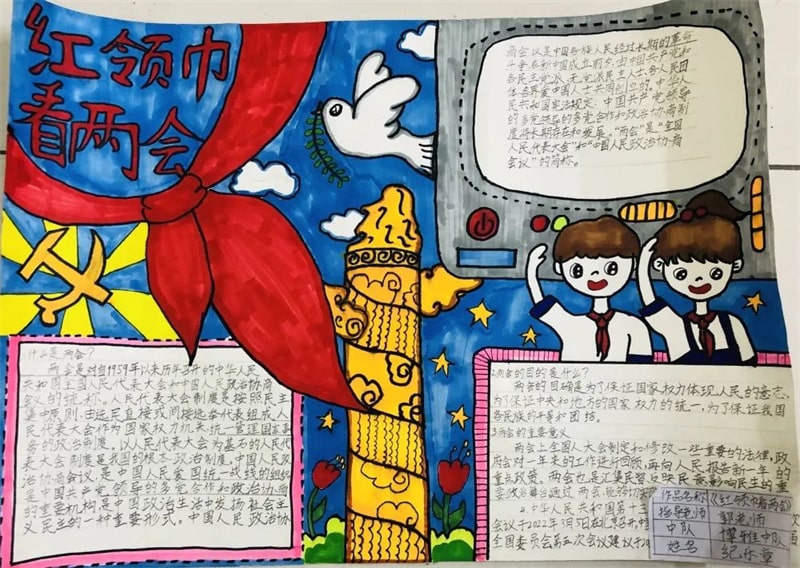 红领巾
看两会
商会议是中国各族人民经过长期的革命
斗争在新中国成立前夕,由中国共产党和
各民主党派、无党派民主人士各人民团
体各界爱中国人士共同创立的。中华人
民共和国宪法规定:中国共产党领导
的多党领导的多党合作和政治协商制
度将长期存在和发展。“两会”是“全国
人民代表大会”和“中国人民政治协商
会议”的简称。
什么是两会?
两会是对自1959年以来历年召开的中华人民
共和国全国人民代表大会和中国人民政治协商
会议的统称。人民代表大会制度是按照民主
集中原则,由选民直接或间接选举代表组成人
民代表大会作为国家权力机关统一管理国家事
务的政治制度。以人民代表大会为基石的人民代
表大会制度是我国的根本政治制度,中国人民政
治协商会议,是中国人民爱国统一战线的组织
是中国共产党领导的多党合作和政治协商
的重要机构,是中国政治生活中发扬社会主
义民主的一种重要形式。中国人民政治协
2.两会的目的是什么?
两会的目的是为了保证国家权力体现人民的意志,
为了保证中央和地方的国家权力的统一,为了保证我国
各民族的平等和团结。
3.两会的重要意义
两会上全国人大会制定和修改一些重要的法律,政
府会对一年来的工作进行回顾,再向人民报告新一年的
重大政要。两会也是汇集民智反映民意影响民生的重
要政治舞台通过两会
4.中华人民共和国第十
会议于2022年3月5日在北京召开
全国委员会第五次会议建议于
作品名称《红领巾看两会》
指导老师 郭老师
中队 博雅中队
姓名